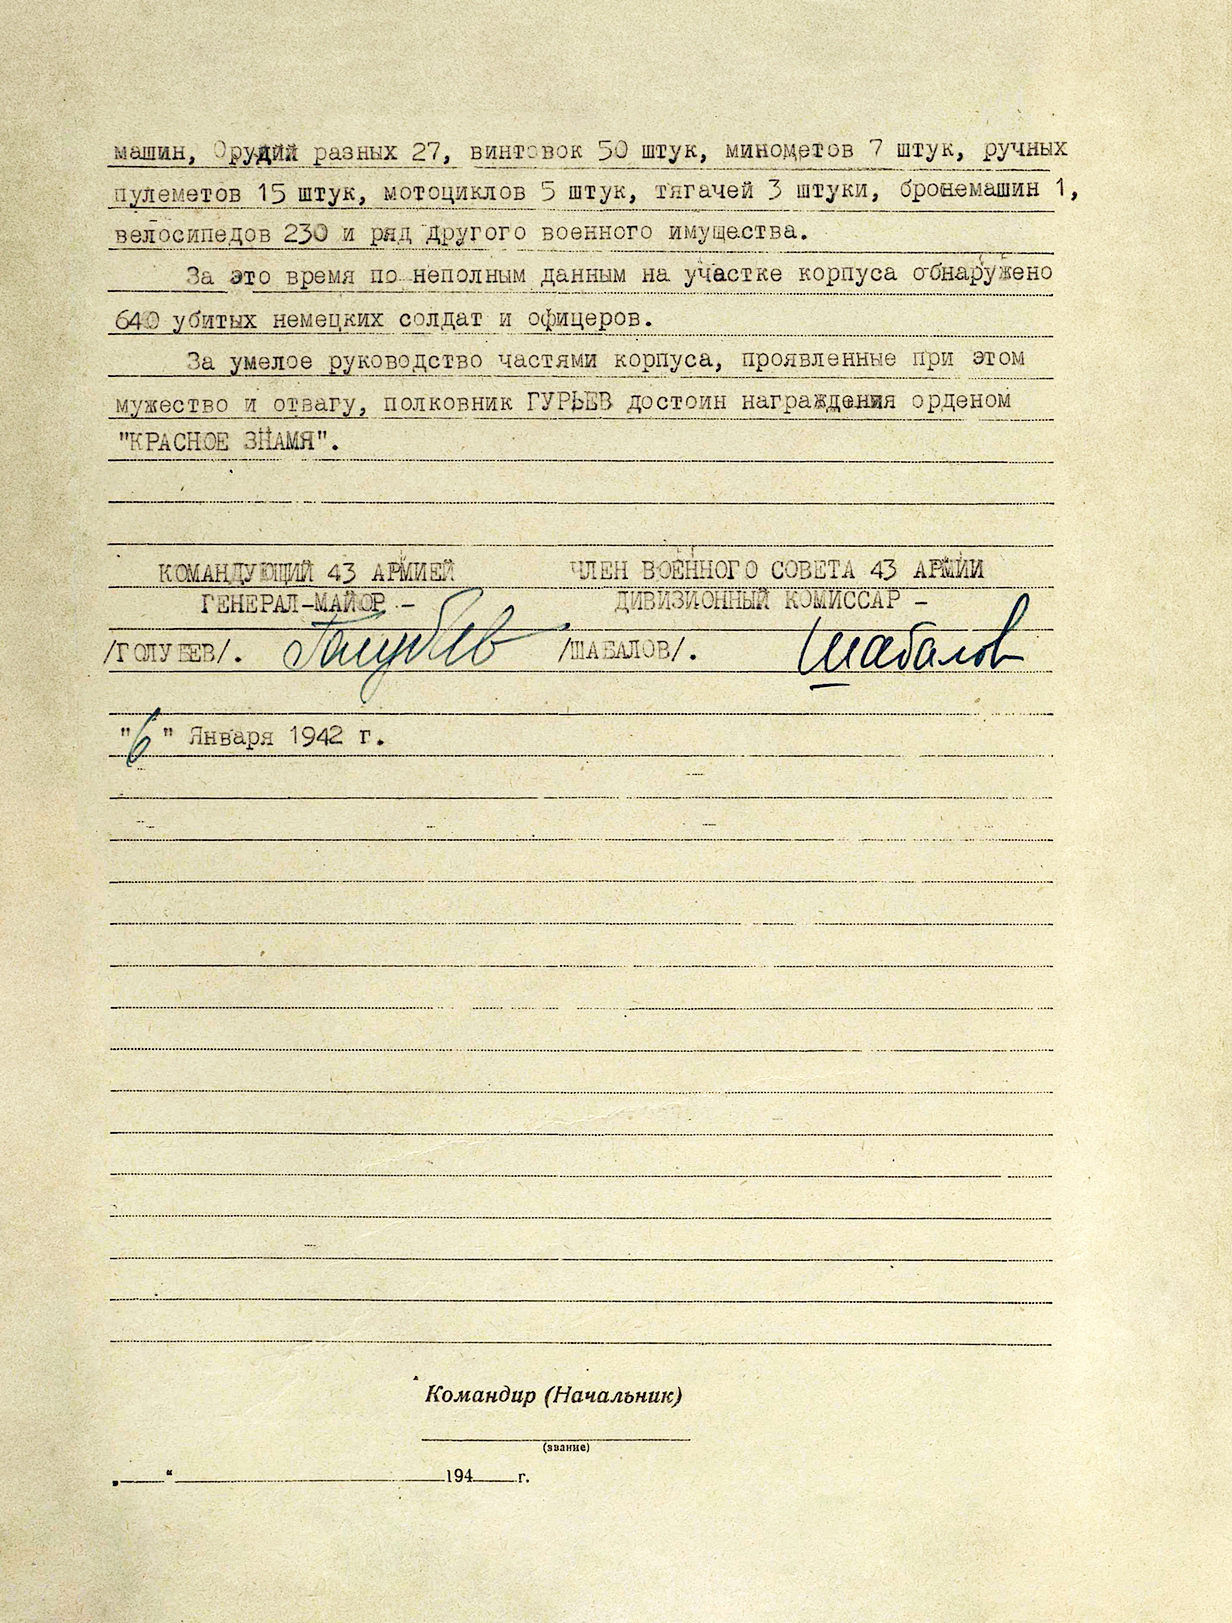 машин, Орудий разных 27, винтовок 50 штук, минометов 7 штук, ручных
пулеметов 15 штук, мотоциклов 5 штук, тягачей 3 штуки, бронемашин 1,
велосипедов 230 и ряд другого военного имущества.
За это время по неполным данным на участке корпуса обнаружено
640 убитых немецких солдат и офицеров.
За умелое руководство частями корпуса, проявленные при этом
мужество и отвагу, полковник ГУРЬЕВ достоин награждения орденом
"КРАСНОЕ ЗНАМЯ".
КОМАНДУЮЩИЙ 43 АРМИЕЙ ЧЛЕН ВОЕННОГО СОВЕТА 43 АРМИИ
ГЕНЕРАЛ-МАЙОР - ДИВИЗИОННЫЙ КОМИССАР -
/ГОЛУБЕВ/. Голубев /ШАБАЛОВ/. Шабалов
"6" Января 1942 г.
Командир (Начальник)
(звание)
„ “ 194 г.